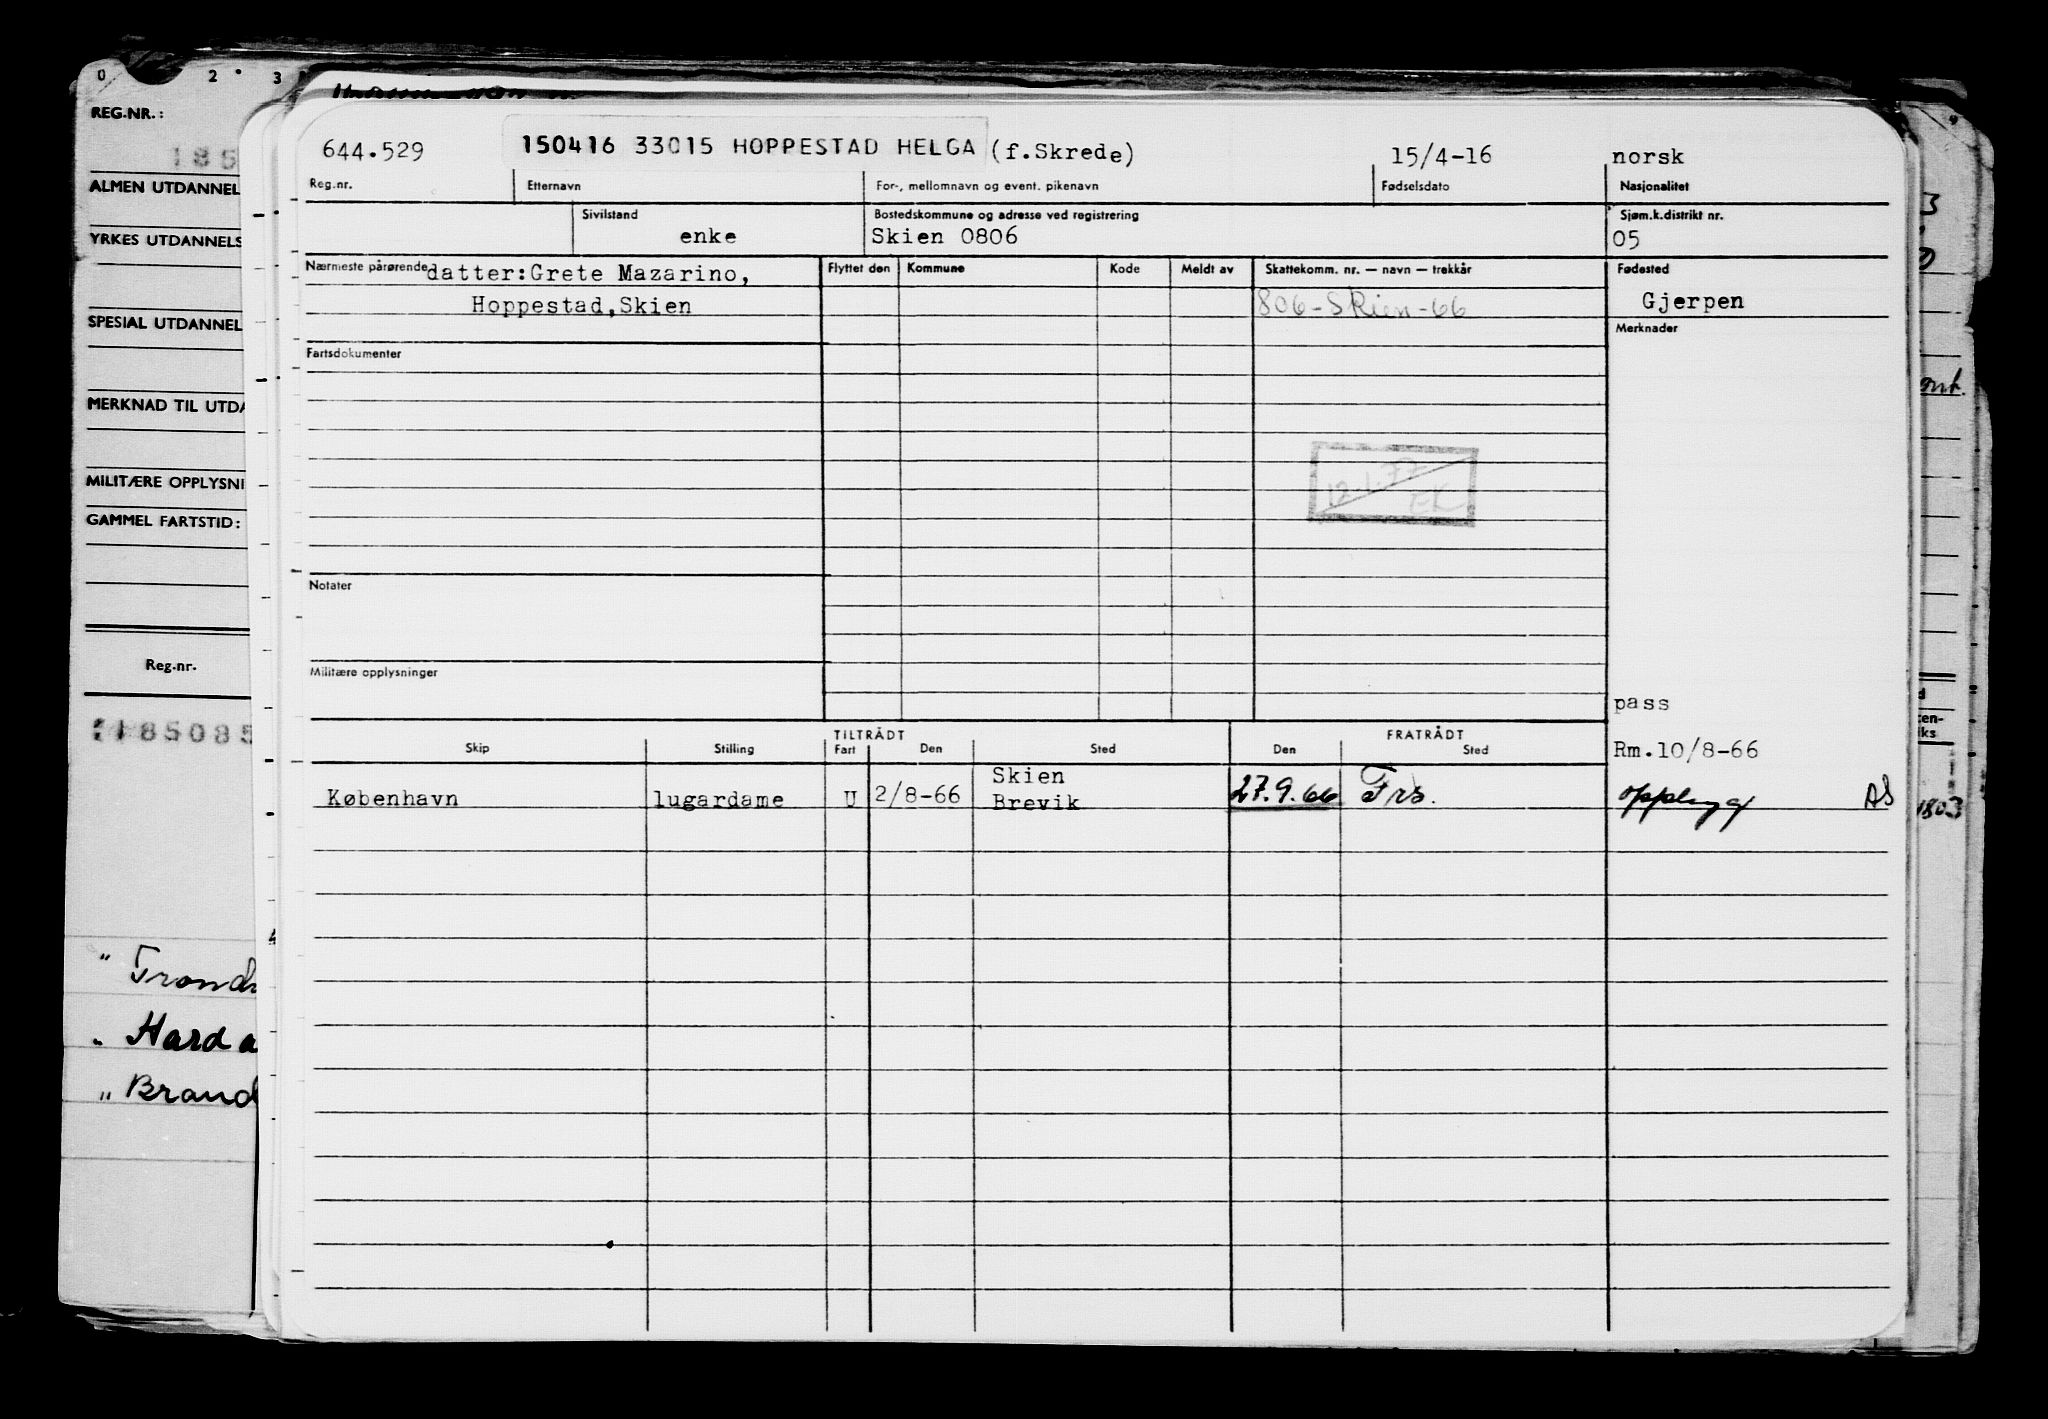 0 2 3
REG.NR.:
185
ALMEN UTDANNEL
YRKES UTDANNELS
SPESIAL UTDANNEL
MERKNAD TIL UTDA
MILITÆRE OPPLYSNI
GAMMEL FARTSTID:
Reg.nr.
185085
" Trondh
" Harda
" Brand
644.529 150416 33015 HOPPESTAD HELGA (f.Skrede) 15/4-16 norsk
Reg.nr. Etternavn For-, mellomnavn og event. pikenavn Fødselsdato Nasjonalitet
Sivilstand Bostedskommune og adresse ved registrering Sjøm.k.distrikt nr.
enke Skien 0806 05
Nærmeste pårørende datter:Grete Mazarino, Flyttet den Kommune Kode Meldt av Skattekomm. nr. — navn — trekkår Fødested
Hoppestad,Skien 806-Skien-66 Gjerpen
Merknader
Fartsdokumenter
12.1.77
EK
Notater
Militære opplysninger
pass
TILTRÅDT FRATRÅDT
Skip Stilling Fart Den Sted Den Sted Rm.10/8-66
Skien
København lugardame U 2/8-66 Brevik 27.9.66 Frs. AS
ont.
1803